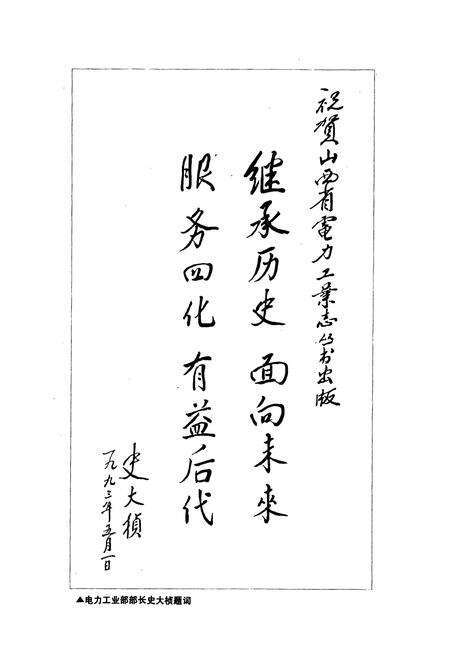 祝賀山西省電力工業志丛书出版
继承历史 面向未來
服务四化 有益后代
史大楨
一九九三年五月一日
▲电力工业部部长史大桢题词